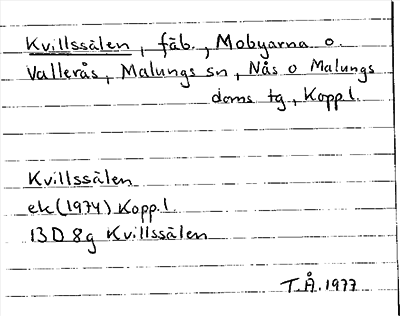 Kvillssälen, fäb., Mobyarna o.
Vallerås, Malungs sn, Nås o Malungs
doms tg, Kopp l.
Kvillssälen
ek (1974) Kopp. l.
13 D 8g Kvillssälen
T.Å. 1977